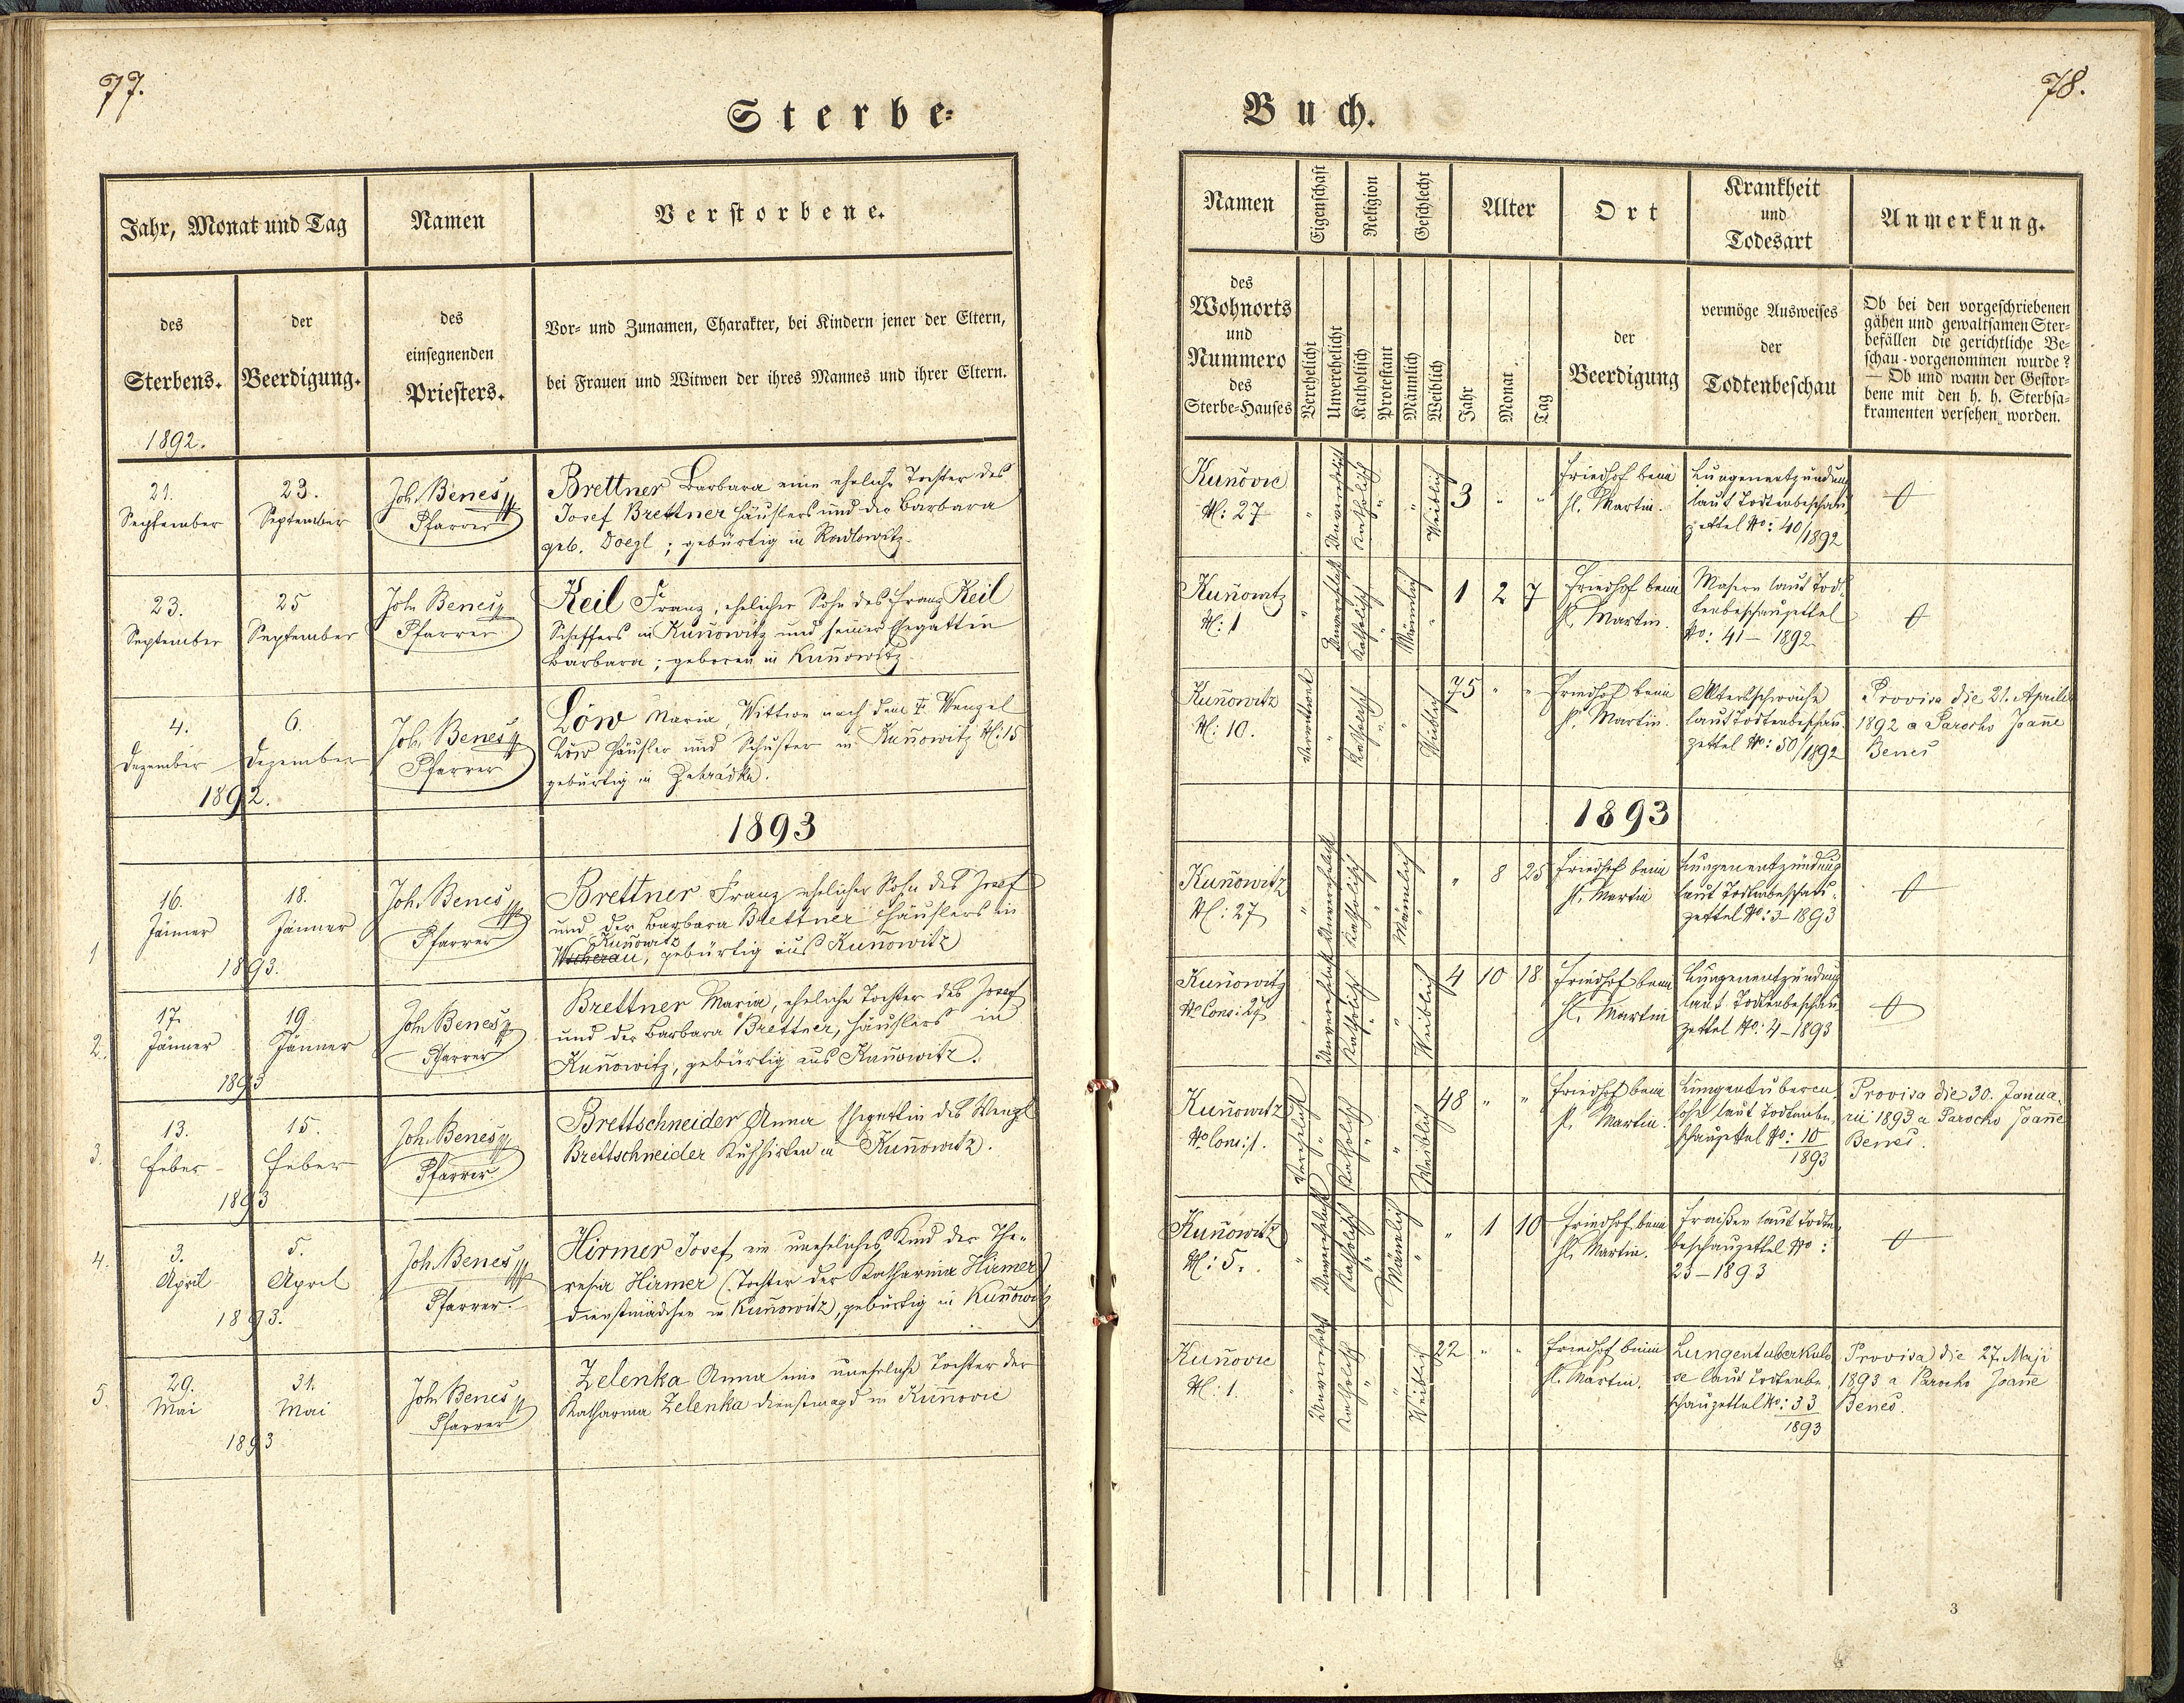 77.
Sterbe-
Jahr, Monat und Tag
Namen
Verstorbene.
des
Sterbens.
der
Beerdigung.
des
einsegnenden
Priesters.
Vor- und Zunamen, Charakter, bei Kindern jener der Eltern,
bei Frauen und Witwen der ihres Mannes und ihrer Eltern.
1892.
21.
September
23.
September
Joh. Beneš
Pfarrer
Brettner Barbara eine eheliche Tochter des
Josef Brettner Häuslers und der Barbara
geb. Doegl; gebürtig in Radlowitz
23.
September
25
September
Joh Beneš
Pfarrer
Keil Franz, ehelicher Sohn des Franz Keil
Schaffers in Kun̄owitz und seiner Ehegattin
Barbara; geboren in Kun̄owitz
4.
Dezember
6.
Dezember
1892.
Joh. Beneš
Pfarrer
Löw Maria, Wittwe nach dem † Wenzel
Löw Häusler und Schuster in Kun̄owitz N: 15
gebürtig in Zahrádka.
1893
1
16.
Jänner
18.
Jänner
1893.
Joh. Beneš
Pfarrer
Brettner Franz ehelicher Sohn des Josef
und der Barbara Brettner Häuslers in
Kun̄owitz
Wscherau, gebürtig aus Kun̄owitz
2.
17.
Jänner
19.
Jänner
1893
Joh Beneš
Pfarrer
Brettner Maria, eheliche Tochter des Josef
und der Barbara Brettner, Häuslers in
Kun̄owitz, gebürtig aus Kun̄owitz.
3.
13.
Feber
15.
Feber
1893
Joh. Beneš
Pfarrer
Brettschneider Anna Ehegattin des Wenzl
Brettschneider Kuhhirten in Kun̄owitz.
4.
3.
April
5.
April
1893.
Joh. Beneš
Pfarrer.
Hirmer Josef, ein uneheliches Kind der The-
resia Hirmer (Tochter der Katharina Hirmer)
Dienstmädchen in Kun̄owitz), gebürtig in Kun̄owitz
5.
29.
Mai
31.
Mai
1893
Joh Beneš
Pfarrer
Zelenka Anna eine uneheliche Tochter der
Katharina Zelenka Dienstmagd in Kun̄ovic
78.
Buch.
Namen
Eigenschaft
Religion
Geschlecht
Alter
Ort
Krankheit
und
Todesart
Anmerkung.
des
Wohnorts
und
Nummero
des
Sterbe-Hauses
Verehelicht
Unverehelicht
Katholisch
Protestant
Männlich
Weiblich
Jahr
Monat
Tag
der
Beerdigung
vermöge Ausweises
der
Todtenbeschau
Ob bei den vorgeschriebenen
gähen und gewaltsamen Ster-
befällen die gerichtliche Be-
schau vorgenommen wurde?
— Ob und wann der Gestor-
bene mit den h. h. Sterbsa-
kramenten versehen worden.
Kun̄ovic
N: 27
"
Unverehelicht
Katholisch
"
"
Weiblich
3
"
"
Friedhof beim
hl. Martin.
Lungenentzündung
laut Todtenbeschau
zettel No: 40/1892
Kun̄owitz
N: 1
"
Unverehelicht
Katholisch
"
Männlich
"
1
2
7
Friedhof beim
hl. Martin.
Masern laut Tod-
tenbeschauzettel
No: 41 – 1892
Kun̄owitz
N: 10.
Verwittwet
"
Katholisch
"
"
Weiblich
75
"
"
Friedhof beim
hl. Martin.
Altersschwäche
laut Todtenbeschau-
zettel No: 50/1892
Provisa die 21. Aprilis
1892 a Parocho Joan̄e
Beneš
1893
Kun̄owitz
N: 27
"
Unverehelicht
Katholisch
"
Männlich
"
8
25
Friedhof beim
hl. Martin
Lungenentzündung
laut Todtenbeschau-
zettel No: 3 – 1893
Kun̄owitz
No Cons: 27
Unverehelicht
Katholisch
"
"
Weiblich
4
10
18
Friedhof beim
hl. Martin
Lungenentzündung
laut Todtenbeschau
zettel No: 4 – 1893
Kun̄owitz
No Cons: 1.
Verehelicht
"
Katholisch
"
"
Weiblich
48
"
"
Friedhof beim
hl. Martin.
Lungentubercu-
lose laut Todtenbe-
schauzettel No: 10
1893
Provisa die 30. Janua-
rii 1893 a Parocho Joan̄e
Beneš.
Kun̄owitz
N: 5.
"
Unverehelicht
Katholisch
"
Männlich
"
"
1
10
Friedhof beim
hl. Martin.
Fraißen laut Todten-
beschauzettel No:
23 – 1893
Kun̄ovic
N: 1.
"
Unverehelicht
Katholisch
"
"
Weiblich
22
"
"
Friedhof beim
hl. Martin.
Lungentuberkulo-
se laut Todtenbe-
schauzettel No: 33
1893
Provisa die 27. Maji
1893 a Parocho Joan̄e
Beneš.
3